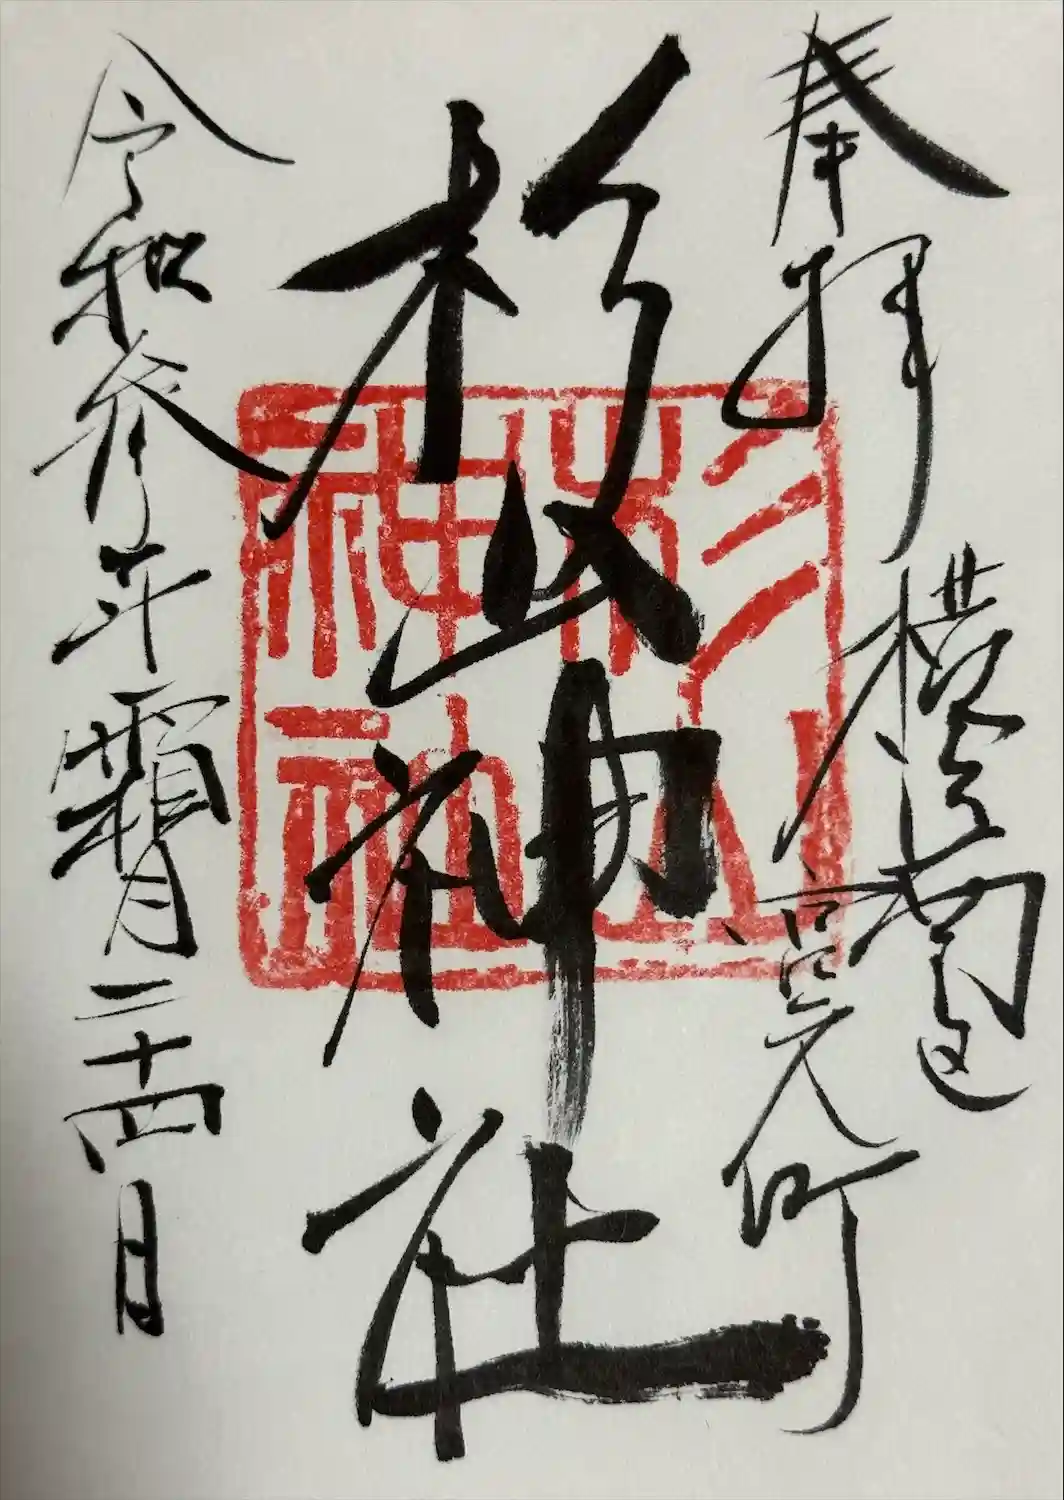 奉拝 横浜南区
宮元町
杉山神社
令和参年霜月二十四日
杉山
神社